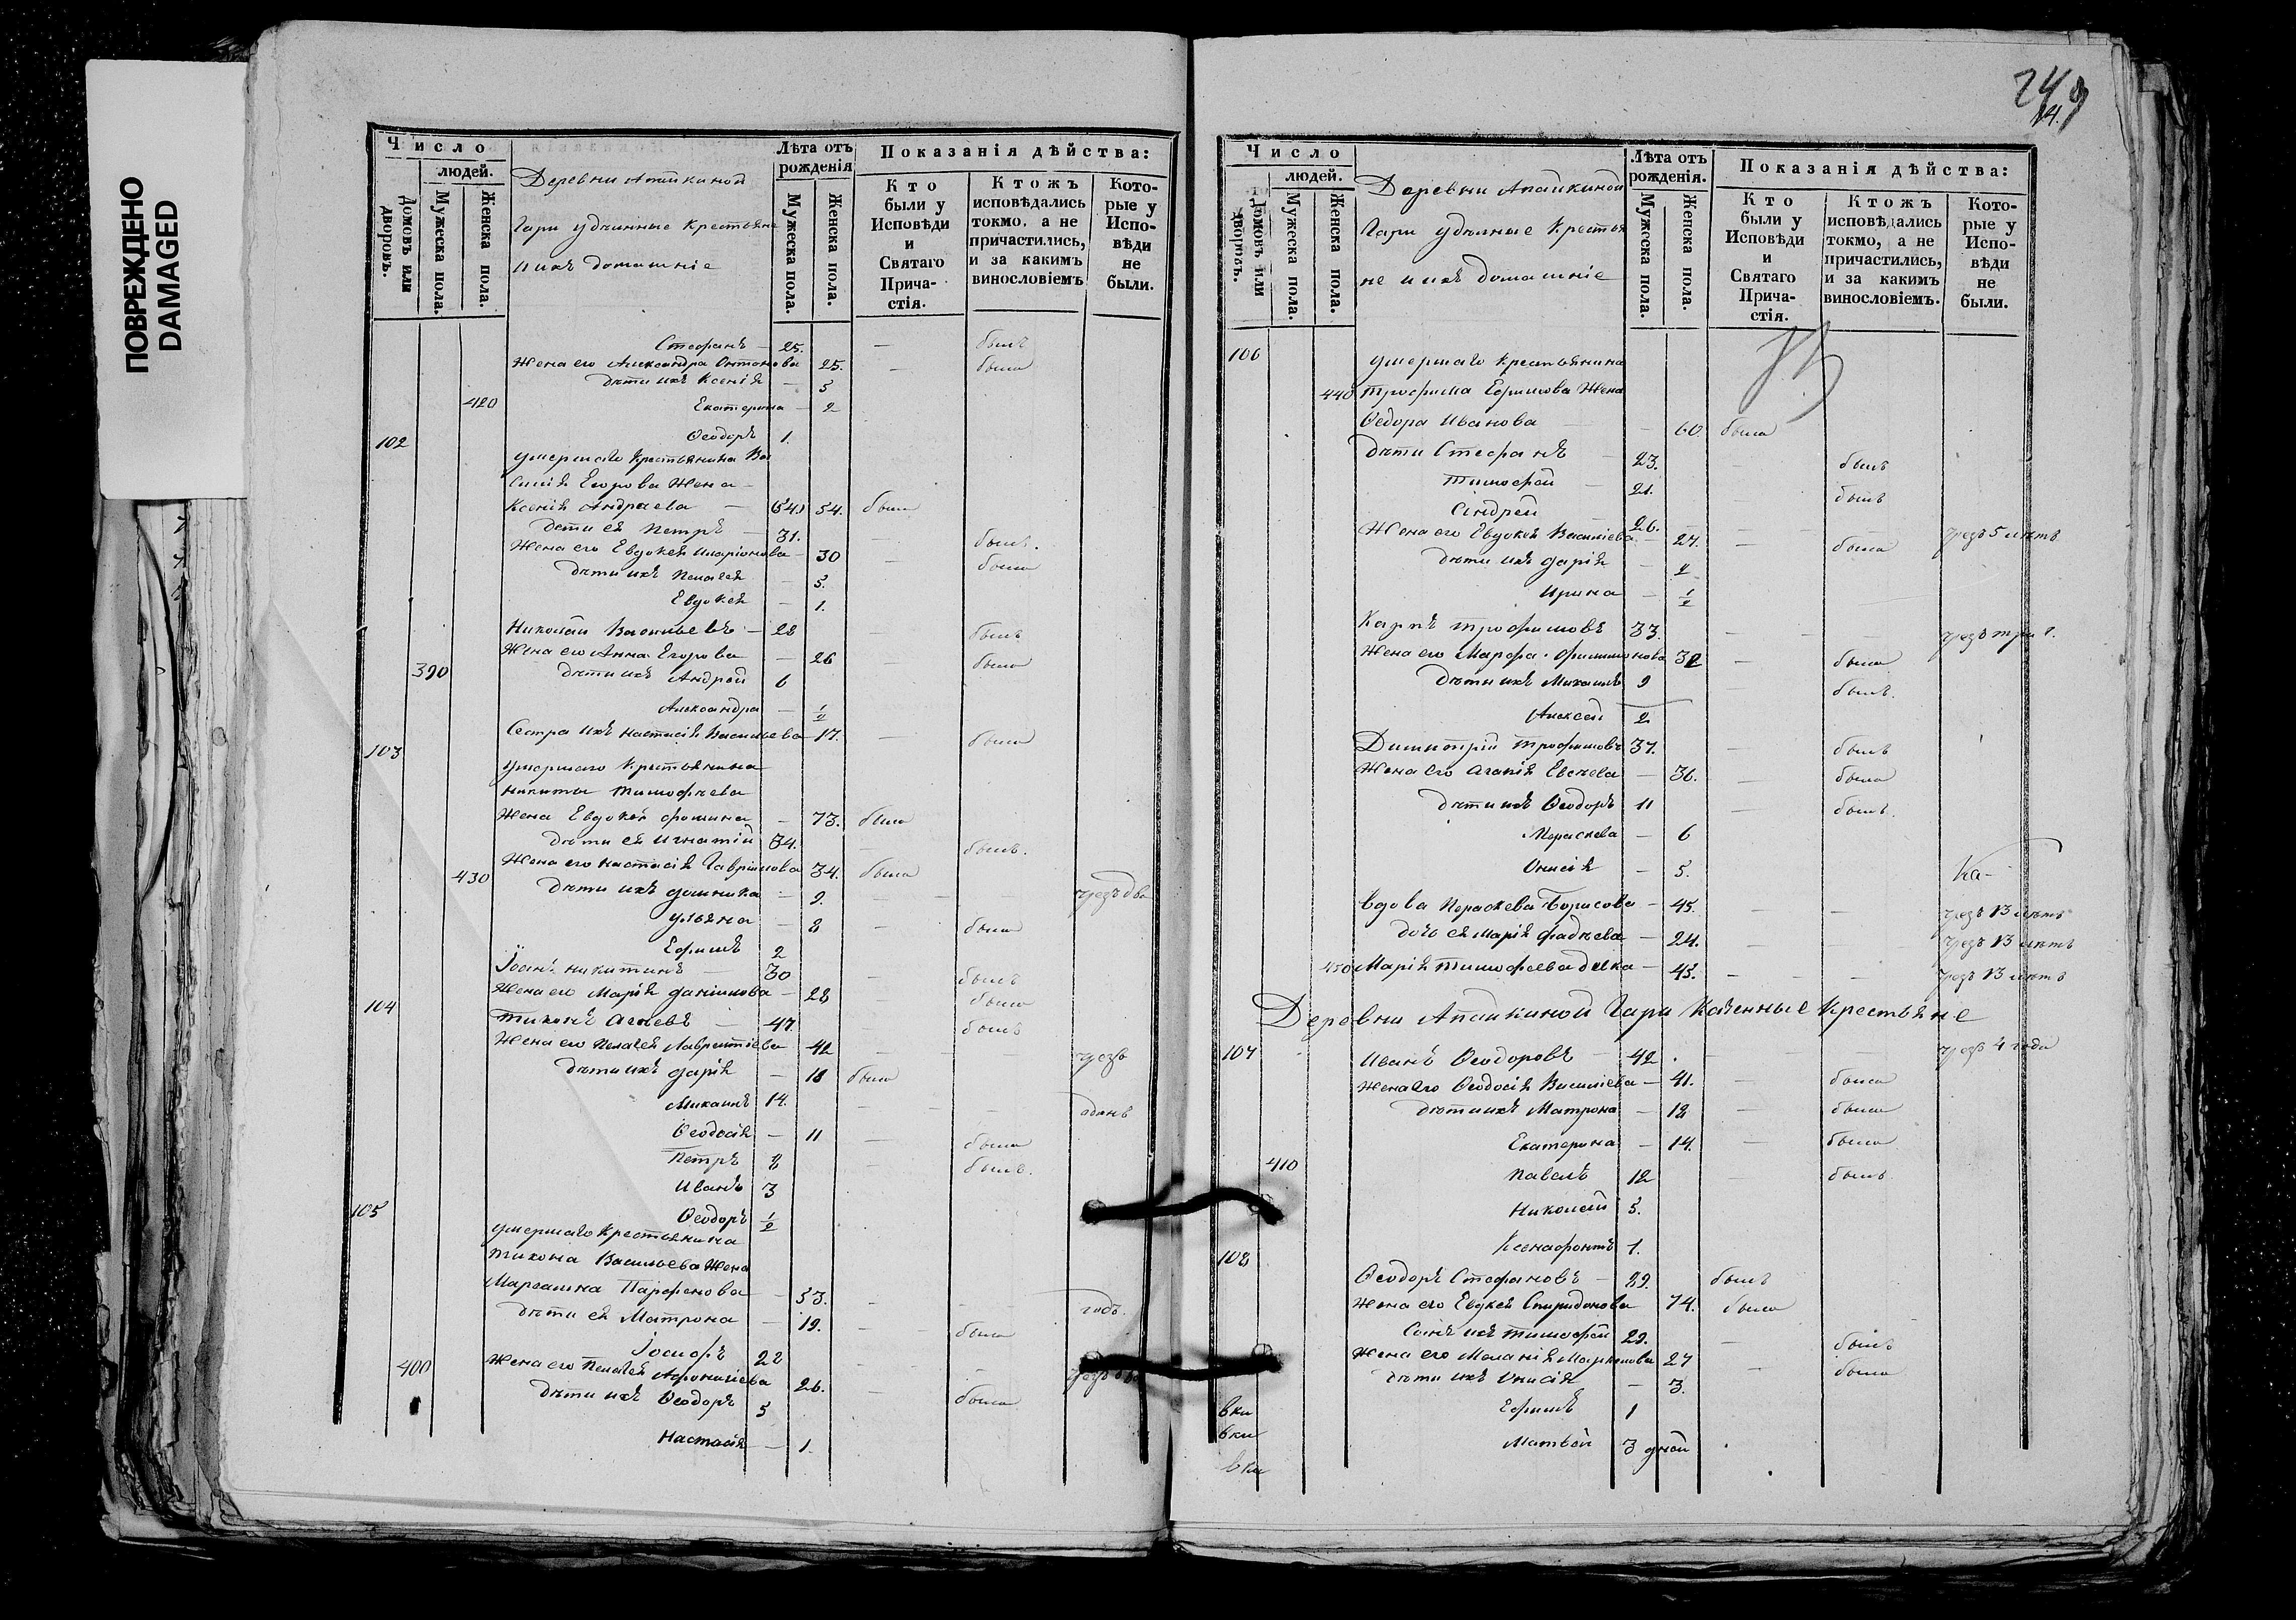 ПОВРЕЖДЕНО
DAMAGED
Число
людей.
Домовъ или дворовъ.
Мужеска пола.
Женска пола.
Деревни Апайкиной
Гари удѣльные Крестьяне
и ихъ домашніе
Лѣта отъ рожденія
Мужеска пола.
Женска пола.
Показанія дѣйства:
Кто были у Исповѣди и Святаго Причастія.
Ктожъ исповѣдались токмо, а не причастились, и за какимъ винословіемъ
Которые у Исповѣди не были.
Стефанъ 25. — былъ
Жена его Александра Антонова 25. — была
дѣти ихъ Ксенія — 5
420 Екатерина — 2
Ѳеодоръ 1.
102
умершаго Крестьянина Ва
силія Егорова Жена
Ксенія Андреева — 54. была
дети ея Петръ — 31. — былъ.
Жена его Евдокея Иларіонова — 30 — была
дѣти ихъ Пелагея — 5.
Евдокея — 1.
Николай Васильевъ — 28 — былъ
Жена его Анна Егорова — 26 — была
390 дѣти ихъ Андрей 6
Александра — 1/2
Сестра ихъ Настасія Васильева 17. — была
103
умершаго Крестьянина
Никиты Тимофѣева
Жена Евдокея Фомина — 73. была
дѣти ея Игнатій 34. — былъ.
Жена его Настасія Гаврилова 34. была
430 дѣти ихъ Домника — 9. — — чрезъ два
Ульяна — 8 — была
Ефимъ 2
Іоанъ Никитинъ — 30 — былъ
Жена его Марія Данилова — 28 — была
104 Тихонъ Агѣевъ — 47 — былъ
Жена его Пелагея Лаврентіева 42 — — — чрезъ
дѣти ихъ Дарія — 18 была
Михаилъ 14. — — — одинъ
Ѳеодосія — 11 — была
Петръ 8 — былъ.
Иванъ 3
105 Ѳеодоръ 1/2
умершаго Крестьянина
Тихона Васильева Жена
Марѳамна Парфенова — 53. — — годъ.
дѣти ея Матрона — 19. — была
Іосифъ 22 — чрезъ два
400 Жена его Пелагея Афонасіева 26. — была
дѣти ихъ Ѳеодоръ 5
Настасія — 1.
249
14.
Число
людей.
Домовъ или дворовъ.
Мужеска пола.
Женска пола.
Деревни Апайкиной
Гари удѣльные Крестья
не и ихъ домашніе
Лѣта отъ рожденія.
Мужеска пола.
Женска пола.
Показанія дѣйства:
Кто были у Исповѣди и Святаго Причастія.
Ктожъ исповѣдались токмо, а не причастились, и за какимъ винословіемъ.
Которые у Исповѣди не были.
106 умершаго Крестьянина
440 Трофима Ефимова Жена
Ѳедора Иванова — 60. была
дѣти Стефанъ — 23. — былъ
Тимофей — 21. — былъ
Андрей 26. чрезъ 5 лѣтъ
Жена его Евдокея Васильева — 27. — была
дѣти ихъ Дарія — 2
Ирина — 1/2
Карпъ Трофимовъ 33. — — чрезъ три г.
Жена его Марфа Филимонова 32 — была
дѣти ихъ Михаилъ 9 — былъ.
Алексей 2
Димитрій Трофимовъ 37. — былъ
Жена его Агапія Евсѣева — 36. — была
дѣти ихъ Ѳеодоръ 11 — былъ.
Параскева — 6
Онисія — 5.
Вдова Параскева Борисова — 45. — — чрезъ 13 лѣтъ
дочь ея Марія Фадѣева — 24. — — чрезъ 13 лѣтъ
450 Марія Тимофеева дѣвка — 45. — — чрезъ 13 лѣтъ
Деревни Апайкиной Гари Казенные Крестьяне
107 Иванъ Ѳеодоровъ — 42 — чрезъ 4 года
Жена его Ѳеодосія Васильева — 41. — была
дѣти ихъ Матрона — 18 — была
Екатерина — 14. — была
410 Павелъ 12 — былъ.
Николай 5.
Ксенофонтъ 1.
108
Ѳеодоръ Стефановъ — 89. былъ
Жена его Евдокея Спиридонова 74. была
Сынъ ихъ Тимофей 29. — былъ
Жена его Меланія Маркелова 27 — была
дѣти ихъ Онисія — 3.
Ефимъ 1
Матвей 3 дней